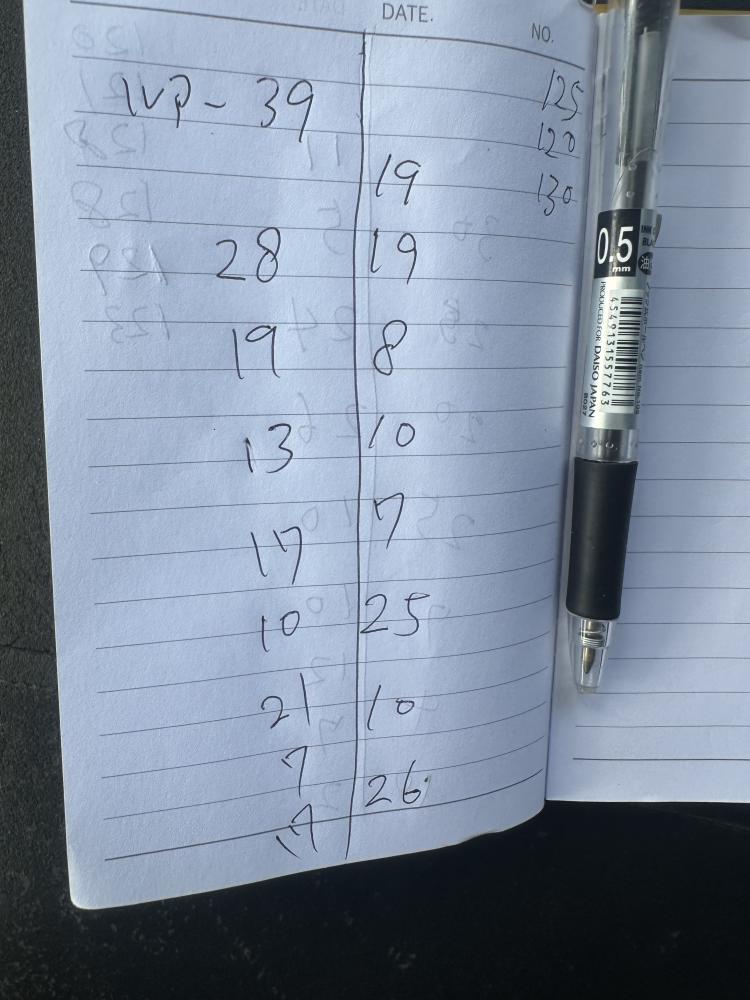 DATE.
NO.
IVP - 39
125
120
130
19
28 19
19 8
13 10
17 7
10 25
21 10
7
26
17
0.5
mm
PRODUCED FOR DAISO JAPAN
4549131557763